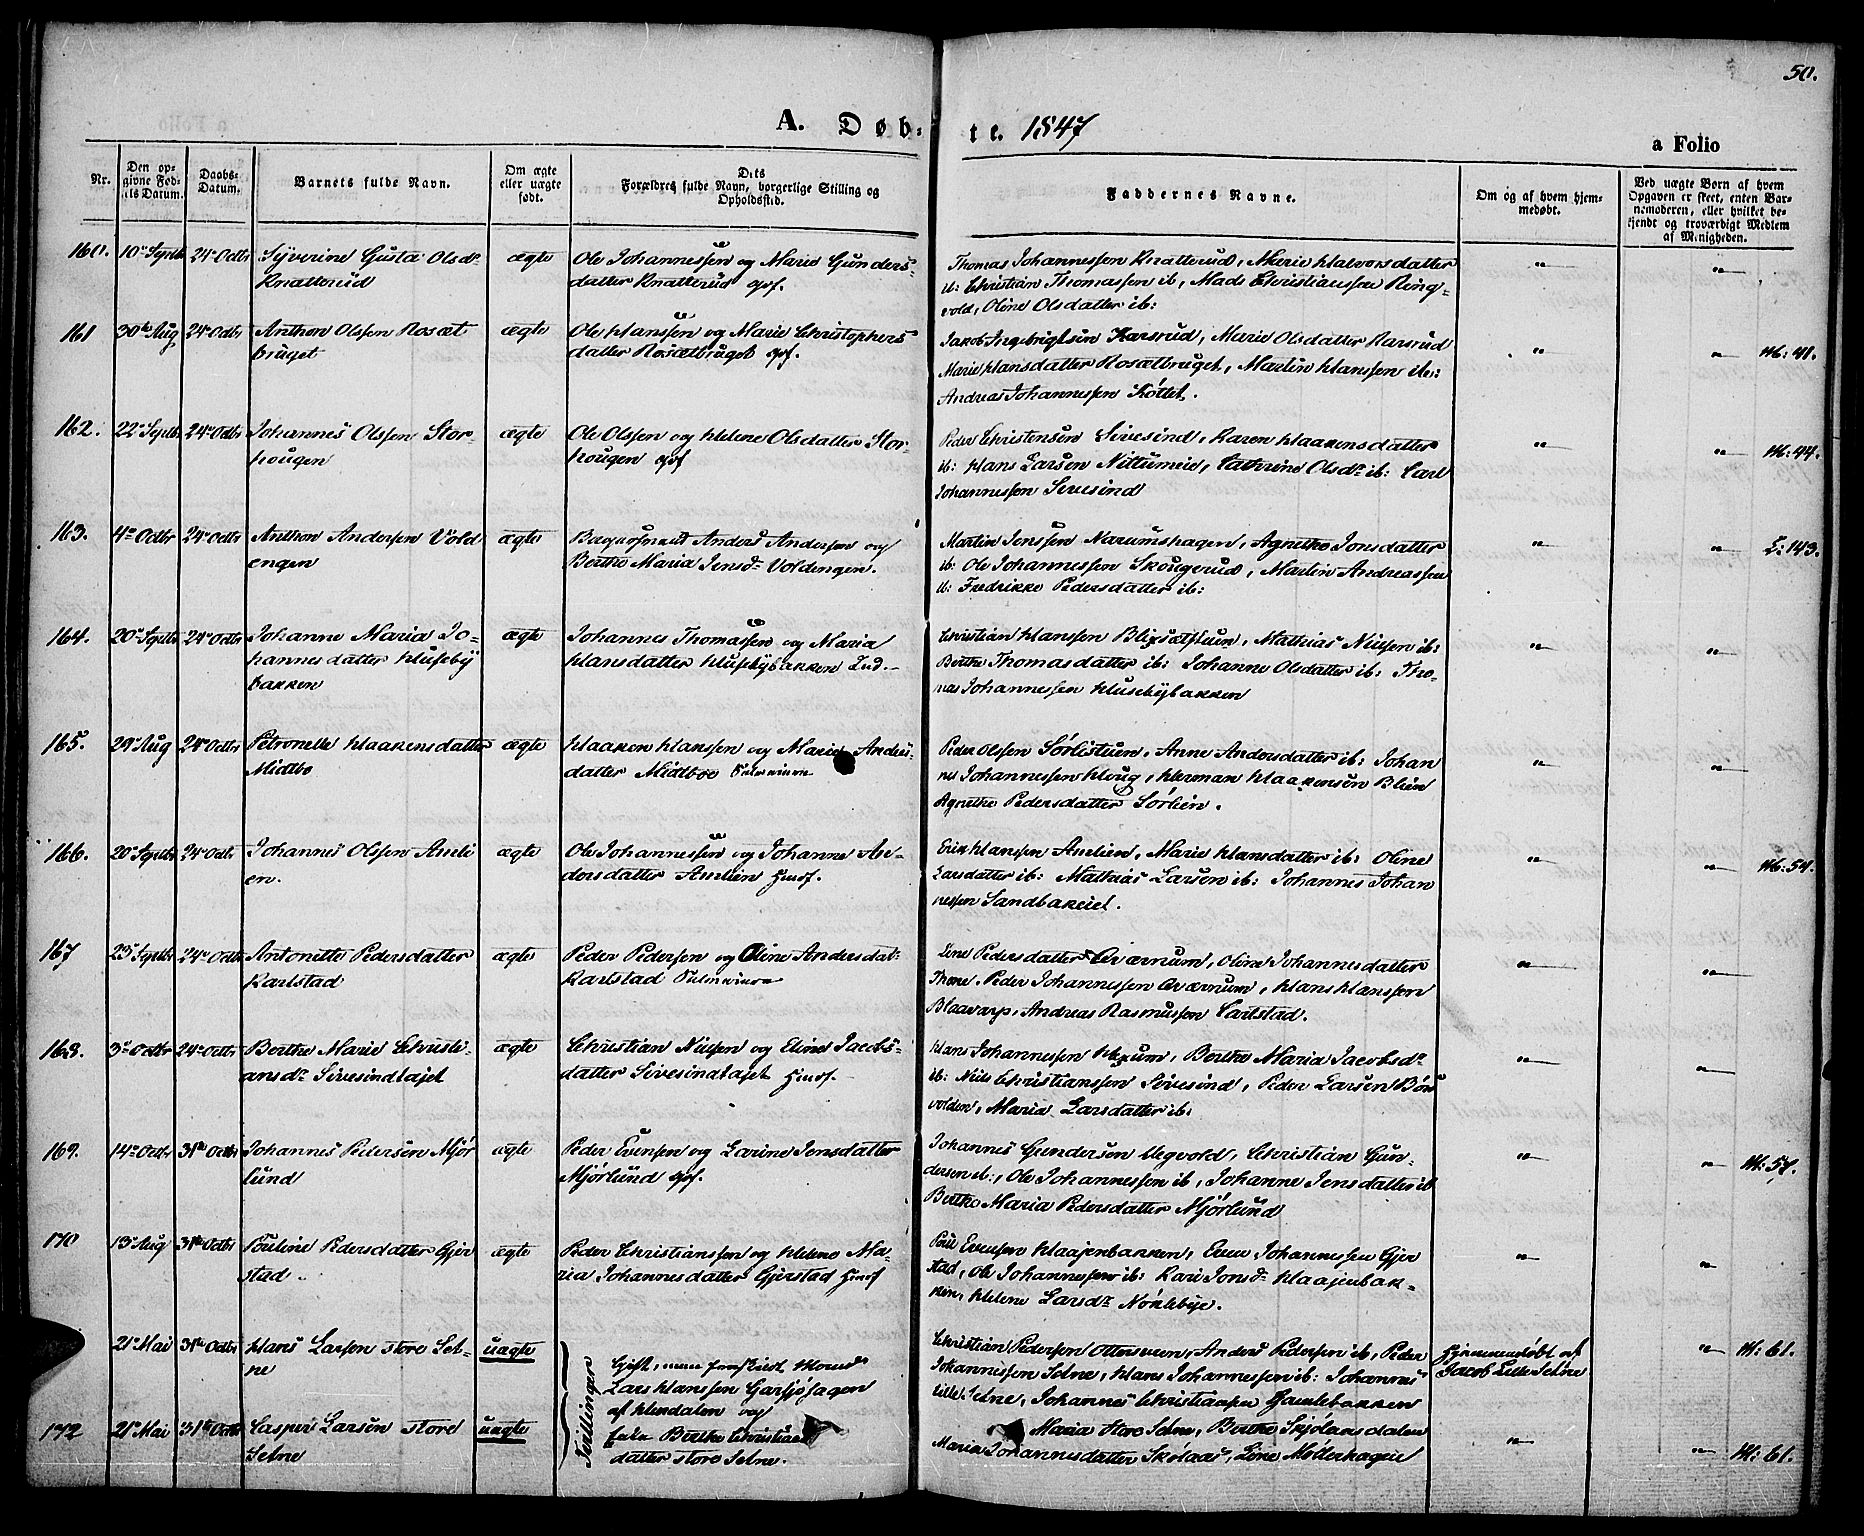 50.
A. Døb-te. 1847
a Folio
Nr.
Den opgivne Fødsels Datum.
Daabs-Datum.
Barnets fulde Navn.
Om ægte eller uægte født.
Dets Forældres fulde Navn, borgerlige Stilling og Opholdssted.
Faddernes Navne.
Om og af hvem hjemmedøbt.
Ved uægte Børn af hvem Opgaven er skeet, enten Barnemoderen, eller hvilket bekjendt og troværdigt Medlem af Menigheden.
160. 10de Septb 24de Octbr Syverine Gusta Olsdr ægte Ole Johannessen og Marie Gunders-
Knatterud datter Knatterud gpf.
Thomas Johannessen Knatterud, Marie Halvorsdatter
ib: Christian Thomassen ib, Mads Christiansen Ring-
vold, Oline Olsdatter ib:
161 30te Aug 24de Octbr Anthon Olssen Rosæt ægte Ole Hanssen og Marie Christophers
bruget datter Rosætbruget gpf.
Jakob Ingebrigtsen Karsrud, Marie Olsdatter Karsrud
Marie Hansdatter Rosætbruget, Martin Hanssen ib:
Andreas Johannessen Kottet.
M: 41.
162. 22de Septbr 24de Octbr Johannes Olssen Stor- ægte Ole Olssen og Helene Olsdatter Stor-
hougen hougen gpf
Peder Christensen Sivesind, Karen Haakensdatter
ib: Hans Larsen Nittumeie, Cathrine Olsdr ib: Carl
Johannessen Sivesind
M: 44.
163. 4de Octbr 24de Octbr Anthon Andersen Vold ægte Anders Andersen og
engen Berthe Maria Jensdr Voldengen.
Martin Jenssen Narumshagen, Agnethe Jonsdatter
ib: Ole Johannessen Skougerud, Martin Andreassen
ib: Fredrikke Pedersdatter ib:
L: 143.
164. 20de Septbr 24de Octbr Johanne Maria Jo- ægte Johannes Thomassen og Maria
hannesdatter Huseby Hansdatter Husebybakken Ind.
bakken
Christian Hanssen Blixsætstuen, Mathias Nielsen ib:
Berthe Thomasdatter ib: Johanne Olsdatter ib: Tho-
mas Johannessen Husebybakken
165. 29de Aug 24de Octbr Petronelle Haakensdatter ægte Haaken Hanssen og Marie Anders-
Midtbo datter Midtboe
Peder Olssen Sørlistuen, Anne Andersdatter ib: Johan
nes Johannessen Houg, Herman Haakensen Blien
Agnethe Pedersdatter Sørlien.
166. 20de Septbr 24de Octbr Johannes Olssen Amli ægte Ole Johannessen og Johanne An-
en. dersdatter Amlien Huusf.
Erik Hanssen Amlien, Marie Hansdatter ib: Oline
Larsdatter ib: Mathias Larsen ib: Johannes Johan
nessen Sandbakeiet.
M: 54.
167 23de Septbr 24de Octbr Antonette Pedersdatter ægte Peder Pedersen og Oline Andersdat-
Karlstad Karlstad
Lene Pedersdatter Qværnum, Oline Johannesdatter
Thone. Peder Johannessen Qværnum, Hans Hanssen
Blaavarp, Andreas Rasmussen Carlstad.
168. 3de Octbr 24de Octbr Berthe Marie Christi- ægte Christian Nielsen og Eline Jacobs-
ansdr Sivesindlajet datter Sivesindlajet Huusf.
Hans Johannessen Hexum, Berthe Maria Jacobsdr
ib: Niels Christianssen Sivesind, Peder Larsen Børs
volden, Maria Larsdatter ib:
169. 14de Octbr 31te Octbr Johannes Pedersen Mjør ægte Peder Evensen og Larine Jensdatter
lund Mjørlund gpf.
Johannes Gundersen Ulsvold, Christian Gun-
dersen ib:, Ole Johannessen ib, Johanne Jensdatter ib
Berthe Maria Pedersdatter Mjørlund
M: 57.
170 13de Aug 31te Octbr Pouline Pedersdatter Gjer ægte Peder Christianssen og Helene Ma-
stad. ria Johannesdatter Gjerstad Huusf
Poul Evensen Haajenbakken, Even Johannessen Gjer
stad, Ole Johannessen ib: Kari Jonsdr Haajenbak-
ken, Helene Larsdr Nøklebye.
21de Mai 31te Octbr Hans Larssen store Sel- uægte Gift,
ne Lars Hanssen Garsjøhagen
af Hendalen og
Christian Pedersen Ottersveen, Anders Pedersen ib, Peder
Johannessen Selne, Hans Johannessen ib: Johannes
Lille Selne, Johannes Christiansen Gamlebakken
Hjemmedøbt af
Jacob Lille Selne
M: 61.
172 21de Mai 31te Octbr Casper Larsen store uægte Berthe Christians
Selne datter store Selne.
Tvillinger
Maria Store Selne, Berthe Skjølaasdalen
Maria Johannesdatter Skølaas, Line Møllerhagen
M: 61.